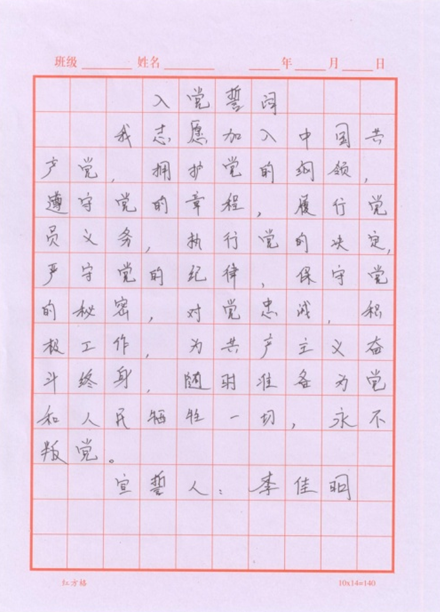 班级 姓名 年 月 日
入党誓词
我志愿加入中国共
产党，拥护党的纲领，
遵守党的章程，履行党
员义务，执行党的决定，
严守党的纪律，保守党
的秘密，对党忠诚，积
极工作，为共产主义奋
斗终身，随时准备为党
和人民牺牲一切，永不
叛党。
宣誓人：李佳明
红方格 10x14=140